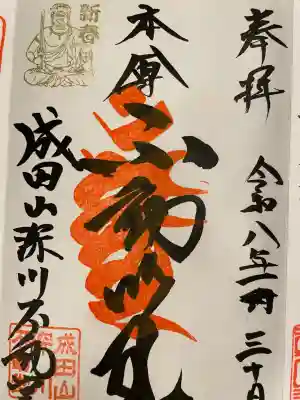 奉拝
令和八年一月三十日
本尊
不動明王
成田山深川不動堂
新春
成田山